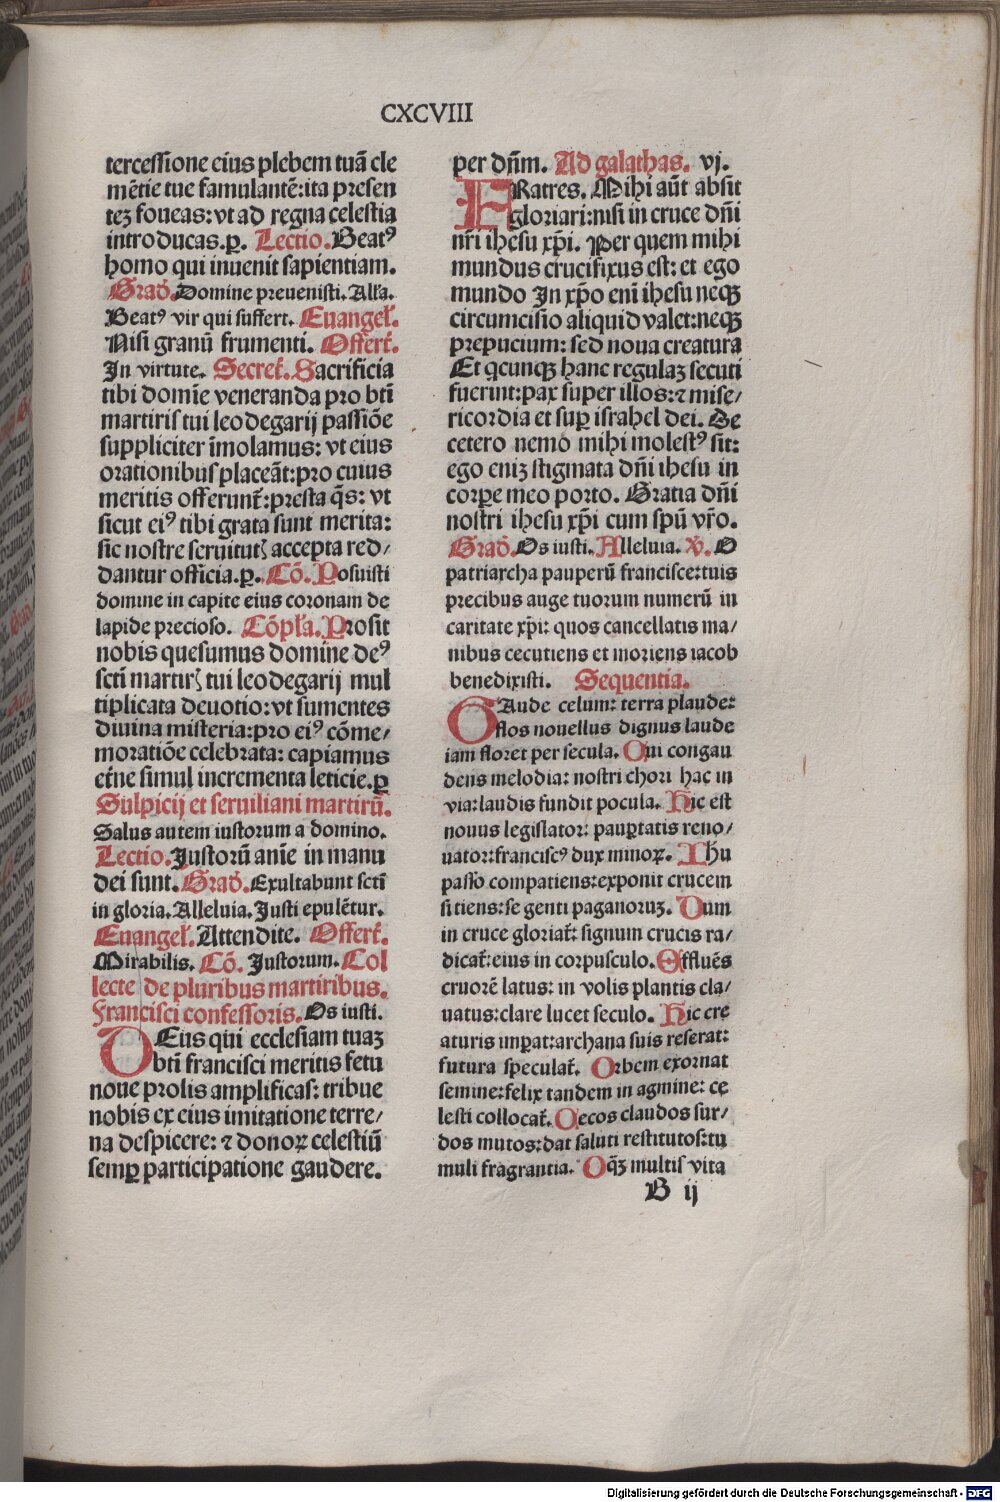 CXCVIII
tercessione eius plebem tuā cle
mētie tue famulantē: ita presen
teꝫ foueas: vt ad regna celestia
introducas. ꝑ. Lectio. Beatꝰ
homo qui inuenit sapientiam.
Grad̄. Domine preuenisti. Alła.
Beatꝰ vir qui suffert. Euangeł.
Nisi granū frumenti. Offert̄.
In virtute. Secret̄. Sacrificia
tibi domīe veneranda pro bt̄i
martiris tui leodegarij passiōe
suppliciter īmolamus: vt eius
orationibus placeāt: pro cuius
meritis offerunt̄: presta q̄s: vt
sicut eiꝰ tibi grata sunt merita:
sic nostre seruitutꝭ accepta red/
dantur officia. ꝑ. Cō. Posuisti
domine in capite eius coronam de
lapide precioso. Cōpła. Prosit
nobis quesumus domine deꝰ
sc̄ti martirꝭ tui leodegarij mul
tiplicata deuotio: vt sumentes
diuina misteria: pro eiꝰ cōme/
moratiōe celebrata: capiamus
et̄ne simul incrementa leticie. ꝑ
Sulpicij et seruiliani martirū.
Salus autem iustorum a domino.
Lectio. Justorū anīe in manu
dei sunt. Grad̄. Exultabunt sc̄ti
in gloria. Alleluia. Justi epulētur.
Euangeł. Attendite. Offert̄.
Mirabilis. Cō. Justorum. Col
lecte de pluribus martiribus.
Francisci confessoris. Os iusti.
DEus qui ecclesiam tuaꝫ
bt̄i francisci meritis fetu
noue prolis amplificas: tribue
nobis ex eius imitatione terre/
na despicere: ⁊ donoꝝ celestiū
semꝑ participatione gaudere.
per dn̄m. Ad galathas. vj.
FRatres. Mihi aūt absit
gloriari: nisi in cruce dn̄i
nr̄i ihesu xp̄i. Per quem mihi
mundus crucifixus est: et ego
mundo In xp̄o enī ihesu neqꝫ
circumcisio aliquid valet: neqꝫ
prepucium: sed noua creatura
Et q̄cunqꝫ hanc regulaꝫ secuti
fuerint: pax super illos: ⁊ mise/
ricordia et suꝑ israhel dei. De
cetero nemo mihi molestꝰ sit:
ego eniꝫ stigmata dn̄i ihesu in
corꝑe meo porto. Gratia dn̄i
nostri ihesu xp̄i cum spū vr̄o.
Grad̄. Os iusti. Alleluia. ℣. O
patriarcha pauperū francisce: tuis
precibus auge tuorum numerū in
caritate xp̄i: quos cancellatis ma/
nibus cecutiens et moriens iacob
benedixisti. Sequentia.
GAude celum: terra plaude:
flos nouellus dignus laude
iam floret per secula. Qui congau
dens melodia: nostri chori hac in
via: laudis fundit pocula. Hic est
nouus legislator: pauꝑtatis reno/
uator: franciscꝰ dux minoꝝ. Ihu
passo compatiens: exponit crucem
sitiens: se genti paganoruꝫ. Dum
in cruce gloriat̄: signum crucis ra/
dicat̄: eius in corpusculo. Effluēs
cruorē latus: in volis plantis cla/
uatus: clare lucet seculo. Hic cre
aturis imꝑat: archana suis reserat:
futura speculat̄. Orbem exornat
semine: felix tandem in agmine: ce
lesti collocat̄. Cecos claudos sur/
dos mutos: dat saluti restitutos: tu
muli fragrantia. O qꝫ multis vita
B ij
Digitalisierung gefördert durch die Deutsche Forschungsgemeinschaft - DFG